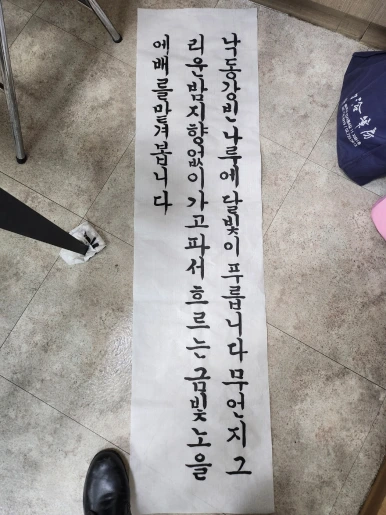 낙동강빈나루에달빛이푸릅니다무언지그
리운밤지향없이가고파서흐르는금빛노을
에배를맡겨봅니다